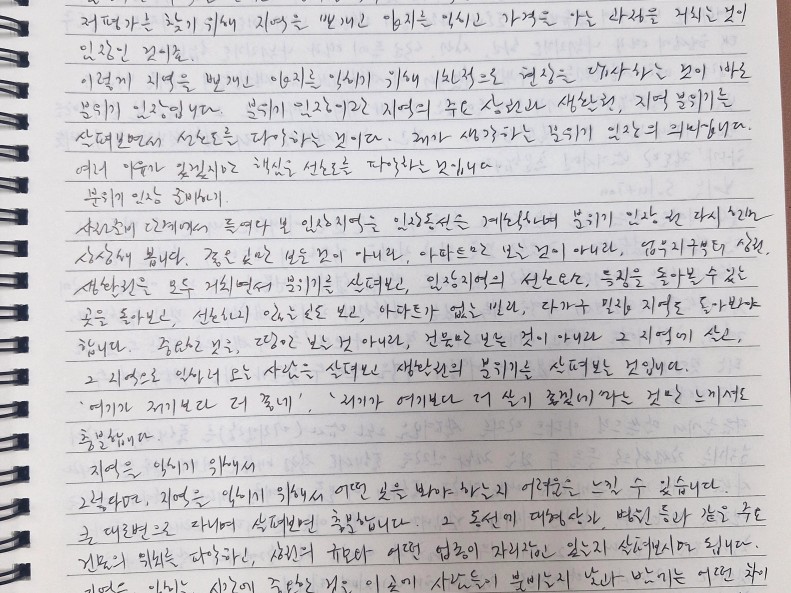 저평가를 찾기 위해 지역을 뽀개고 입지를 익히고 가격을 아는 과정을 거치는 것이
임장인 것이죠.
이렇게 지역을 뽀개고 입지를 익히기 위해 1차적으로 현장을 답사하는 것이 바로
분위기 임장입니다. 분위기 임장이란 지역의 주요 상권과 생활권, 지역 분위기를
살펴보면서 선호도를 파악하는 것이다. 제가 생각하는 분위기 임장의 의미입니다.
여러 이유가 있겠지만 핵심은 선호도를 파악하는 것입니다
분위기 임장 준비하기.
사전준비 단계에서 들여다 본 임장지역을 임장동선을 계획하며 분위기 임장 전 다시 한번
상상해 봅니다. 좋은 곳만 보는 것이 아니라, 아파트만 보는 것이 아니라, 업무지구부터 상권,
생활권을 모두 거치면서 분위기를 살펴보고, 임장지역의 선호요소, 특징을 돌아볼 수 있는
곳을 돌아보고, 선호하지 않는 곳도 보고, 아파트가 없는 빌라, 다가구 밀집 지역도 돌아봐야
합니다. 중요한 것은, 땅만 보는 것 아니라, 건물만 보는 것이 아니라 그 지역에 살고,
그 지역으로 일하러 오는 사람을 살펴보고 생활권의 분위기를 살펴보는 것입니다.
'여기가 저기보다 더 좋네', '저기가 여기보다 더 살기 좋겠네'라는 것만 느끼셔도
충분합니다
지역을 익히기 위해서
그렇다면, 지역을 익히기 위해서 어떤 곳을 봐야 하는지 어려움을 느낄 수 있습니다.
큰 대로변으로 다니며 살펴보면 충분합니다. 그 동선에 대형상가, 병원 등과 같은 주요
건물의 위치를 파악하고, 상권의 규모와 어떤 업종이 자리잡고 있는지 살펴보시면 됩니다.
지역을 익히는 시간에 중요한 것은 이 곳에 사람들이 붐비는지 낮과 밤에는 어떤 차이